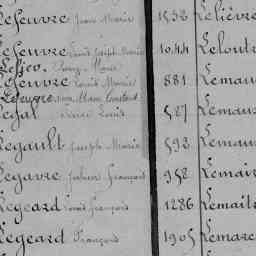 Lefeuvre Jean Marie 1538 Lelièvre
Lefeuvre Louis Joseph Marie 1044 Leloutr
Lefeuvre Louis Marie 881 Lemau
Legal Louis 587 Lemau
Legault Joseph Marie 593 Lemau
Legavre Julien François 958 Lemai
Legeard Louis François 1286 Lemait
Legeard François 1905 Lemarc